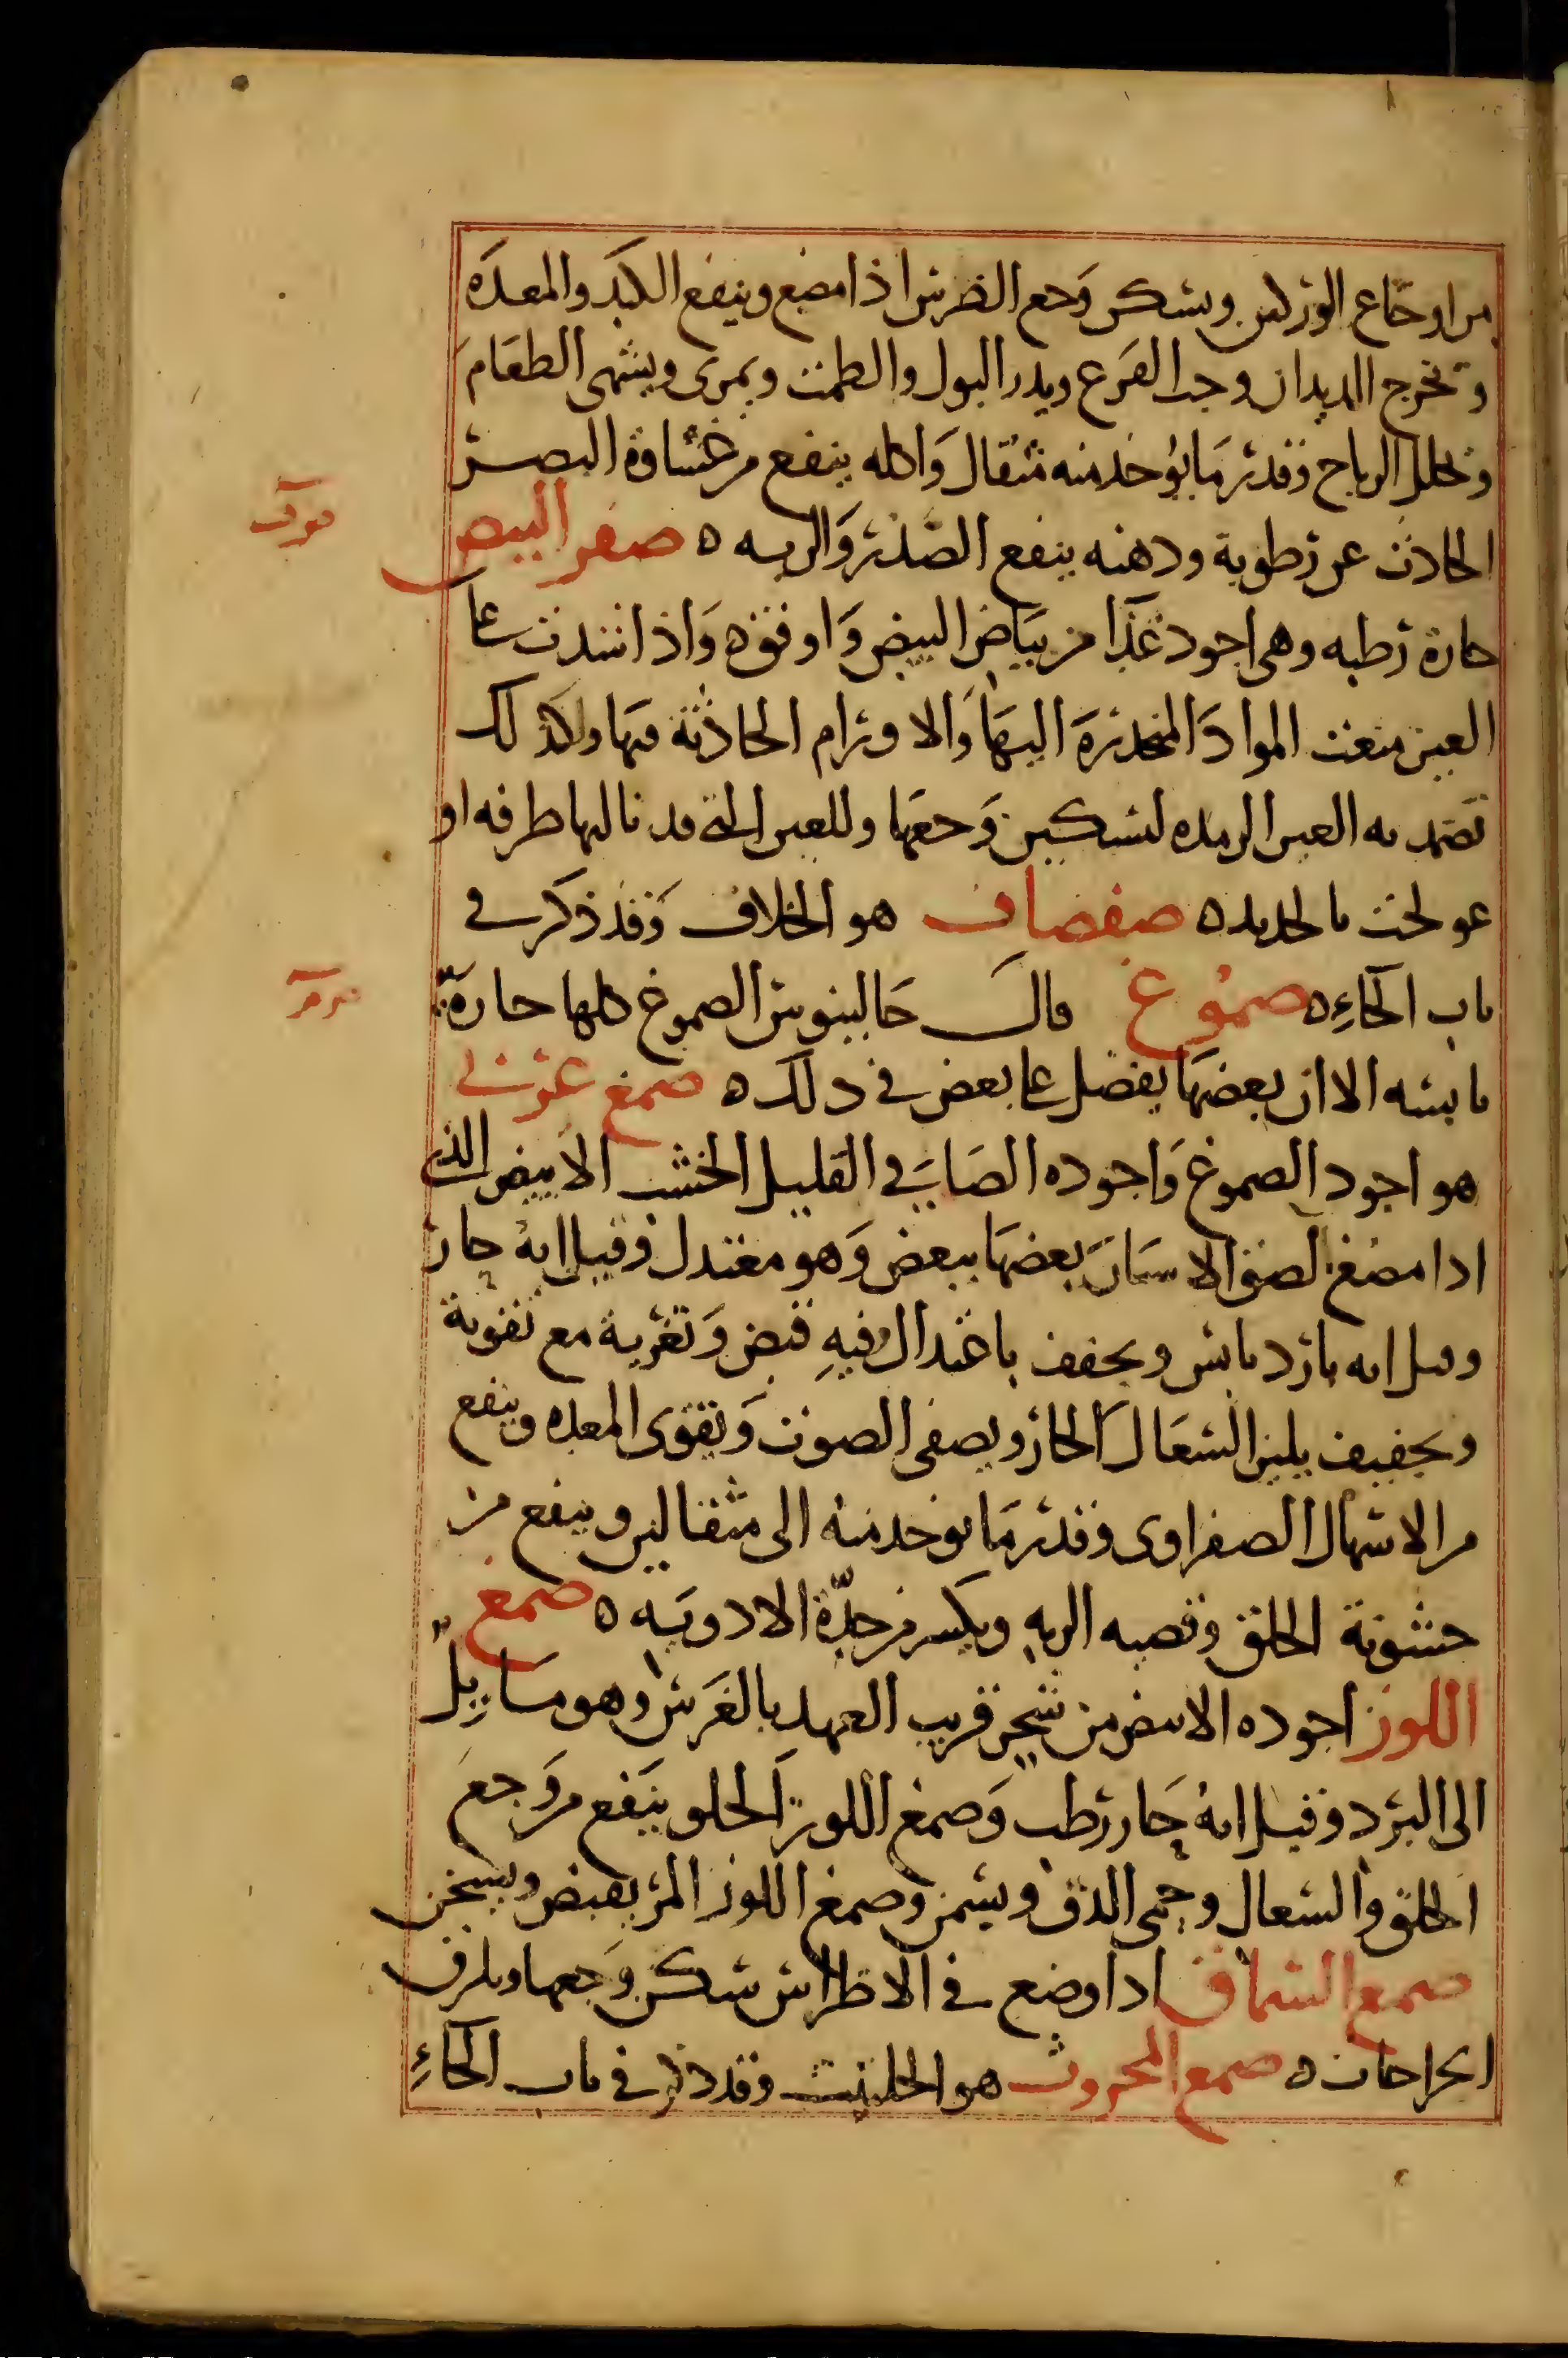 من اوجاع الوركين ويسكن وجع الضرس اذا مضغ وينفع الكبد والمعدَه
وتخرج الديدان وحب القرع ويدر البول والطمث ويمرى ويشهى الطعَام
وتحلل الرياح وقدر مَا يوخذ منه مثقال وَاكله ينفع من غشاوة البصر
الحادث عن رطوبة ودهنه ينفع الصَّدر وَالريه ه صفر البيض
حارة رطبه وهى اجود غذَا من بيَاض البيض وَاوفقه وَاذا شدت على
العين منعت الموادَ المنحدرة اليهَا وَالاورام الحادثة فيها وكذلك
تضمد به العين الرمده لتسكين وَجعهَا وللعين التى قد نالها طرفه او
عولجت بالحديد ه صفصاف هو الخلاف وَقد ذكر في
باب الخَاءِ ه صموغ قال جَالينوس الصموغ كلها حارة
يابسه الا ان بعضهَا يفضل على بعض في ذلك ه صمغ عربى
هو اجود الصموغ وَاجوده الصَافي القليل الخشب الابيض الذى
اذا مضغ لصق الاسنَان بعضهَا ببعض وَهو معتدل وقيل انهُ حار
وقيل انه بارد يابس ويجفف باعتدال وفيهِ قبض وَتغرية مع تقوية
وتجفيف يلين السعَال الحار ويصفى الصوت وَيقوى المعده وينفع
من الاسهال الصفراوى وقدر مَا يوخذ منه الى مثقالين وينفع من
خشونة الحلق وقصبه الريهِ ويكسر من حدّة الادويَه ه صمغ
اللوز اجوده الابيض من شجر قريب العهد بالغَرس وهو مَايِل
الى البرد وقيل انهُ حَار رطب وَصمغ اللوز الحلو ينَفع من وَجع
الحلق والسعال وحمى الدق ويسمن وصمغ اللوز المر يقبض ويسخن
صمغ السماق اذا وضع في الاضراس سكن وَجعها ويلزق
الجراحات ه صمغ المحروث هو الحلتيت وقد ذكر في باب الحَاءِ